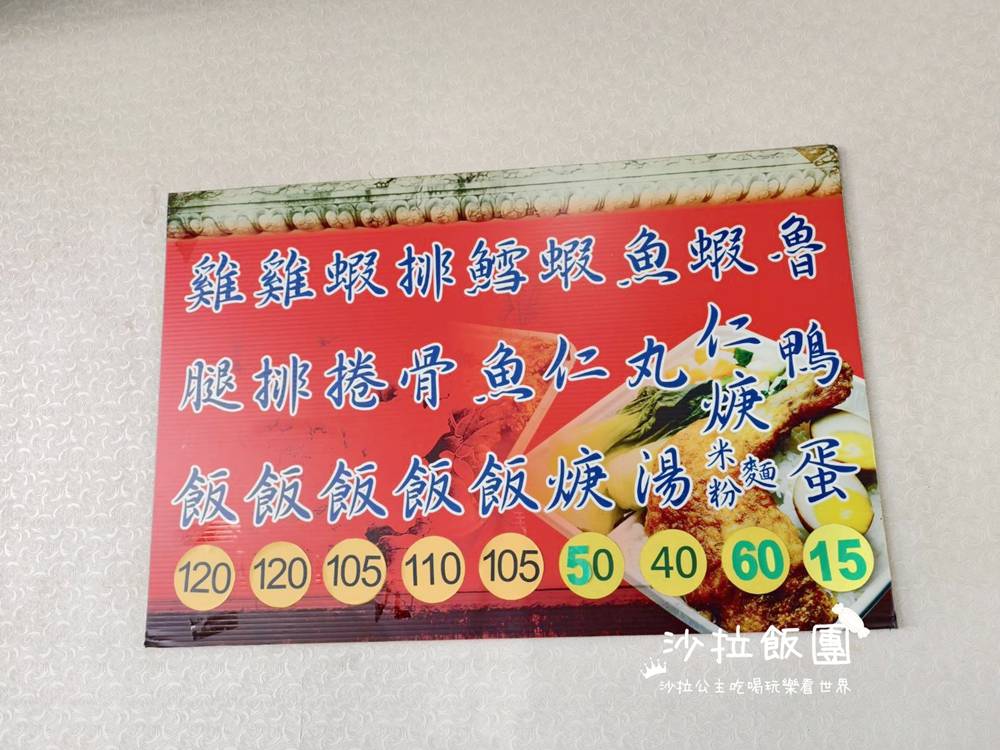 雞腿飯 120
雞排飯 120
蝦捲飯 105
排骨飯 110
鱈魚飯 105
蝦仁焿 50
魚丸湯 40
蝦仁焿米粉麵 60
魯鴨蛋 15
沙拉飯團
沙拉公主吃喝玩樂看世界